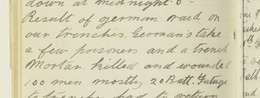 down at midnight 6-
Result of german raid on
our trenches. German's take
a few prisoners and a trench
Mortar killed and wounded
100 men mostly 20 Batt. Fatigue
to had to return